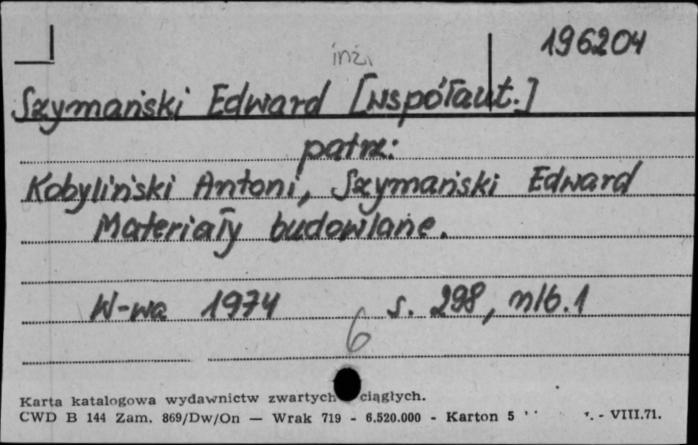 inż.
196204
Szymański Edward [współaut.]
patrz:
Kobyliński Antoni, Szymański Edward
Materiały budowlane.
W-wa 1974 s. 298, nlb. 1
6
Karta katalogowa wydawnictw zwartych ciągłych.
CWD B 144 Zam. 869/Dw/On — Wrak 719 - 6.520.000 - Karton 5 - VIII.71.